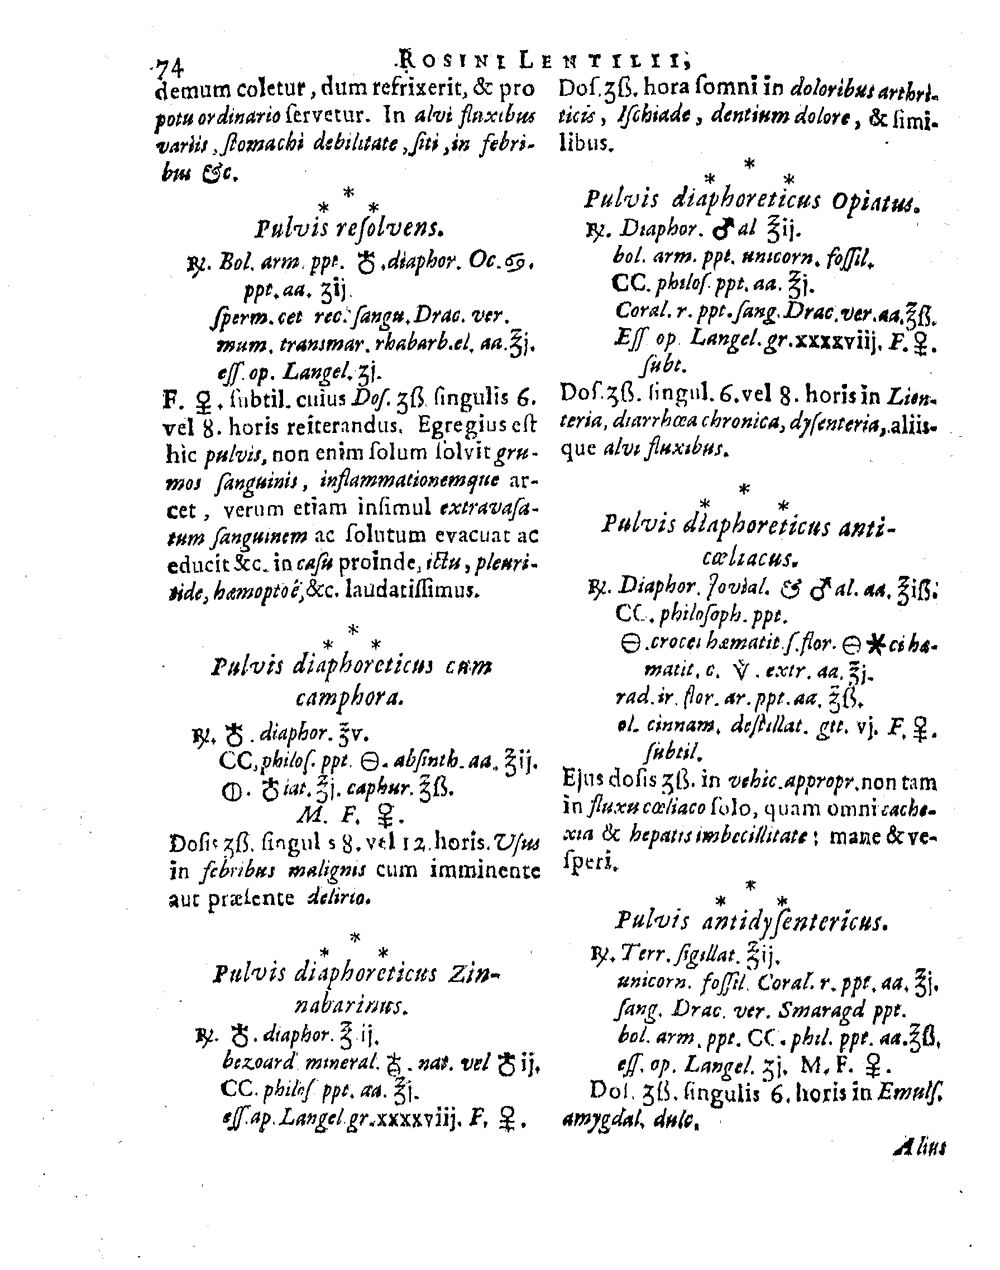 74
ROSINI LENTILII,
demum coletur, dum refrixerit, & pro
potu ordinario ſervetur. In alvi fluxibus
variis, ſtomachi debilitate, ſiti, in febri-
bus &c.
*
* *
Pulvis reſolvens.
℞. Bol. arm. ppt. ♁.diaphor. Oc.♋.
ppt. aa. ʒij.
ſperm. cet rec. ſangu. Drac. ver.
mum. tranſmar. rhabarb. el. aa. ℥j.
eſſ. op. Langel. ʒj.
F. ♀. ſubtil. cuius Doſ. ʒß ſingulis 6.
vel 8. horis reiterandus. Egregius eſt
hic pulvis, non enim ſolum ſolvit gru-
mos ſanguinis, inflammationemque ar-
cet, verum etiam inſimul extravaſa-
tum ſanguinem ac ſolutum evacuat ac
educit &c. in caſu proinde, ictu, pleuri-
tide, hæmoptoë, &c. laudatiſſimus.
*
* *
Pulvis diaphoreticus cum
camphora.
℞. ♁. diaphor. ℥v.
CC. philoſ. ppt. ⊖. abſinth. aa. ℥ij.
⦶. ♁iat. ℥j. caphur. ℥ß.
M. F. ♀.
Doſis ʒß. ſingulis 8. vel 12. horis. Uſus
in febribus malignis cum imminente
aut præſente delirio.
*
* *
Pulvis diaphoreticus Zin-
nabarinus.
℞. ♁. diaphor. ℥ij.
bezoard mineral. nat. vel ♁ij.
CC. philoſ ppt. aa. ℥j.
eſſ. ap. Langel gr. xxxxviij. F. ♀.
Doſ. ʒß. hora ſomni in doloribus arthri-
ticis, Iſchiade, dentium dolore, & ſimi-
libus.
*
* *
Pulvis diaphoreticus Opiatus.
℞. Diaphor. ♂al ℥ij.
bol. arm. ppt. unicorn. foſſil.
CC. philoſ. ppt. aa. ℥j.
Coral. r. ppt. ſang. Drac. ver. aa. ℥ß.
Eſſ op. Langel. gr. xxxxviij. F. ♀.
ſubt.
Doſ. ʒß. ſingul. 6. vel 8. horis in Lien-
teria, diarrhœa chronica, dyſenteria, aliis-
que alvi fluxibus.
*
* *
Pulvis diaphoreticus anti-
cœliacus.
℞. Diaphor. Jovial. & ♂al. aa. ℥iß.
CC. philoſoph. ppt.
⊖. crocei hæmatit. ſ. flor. ⊖✱ci hæ-
matit. c. extr. aa. ℥j.
rad. ir. flor. ar. ppt. aa. ℥ß.
ol. cinnam. deſtillat. gtt. vj. F. ♀.
ſubtil.
Ejus doſis ʒß. in vehic. appropr. non tam
in fluxu cœliaco ſolo, quam omni cache-
xia & hepatis imbecillitate; mane & ve-
ſperi.
*
* *
Pulvis antidyſentericus.
℞. Terr. ſigillat. ℥ij.
unicorn. foſſil. Coral. r. ppt. aa. ℥j.
ſang. Drac. ver. Smaragd ppt.
bol. arm. ppt. CC. phil. ppt. aa. ℥ß.
eſſ. op. Langel. ʒj. M. F. ♀.
Doſ. ʒß. ſingulis 6. horis in Emulſ.
amygdal. dulc.
Alius